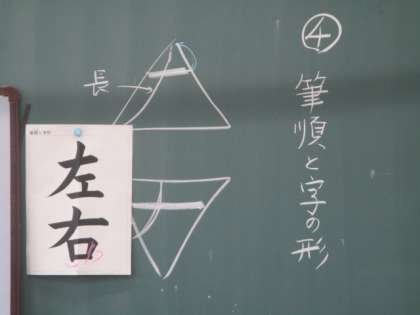 ④
筆順と字の形
長
左右